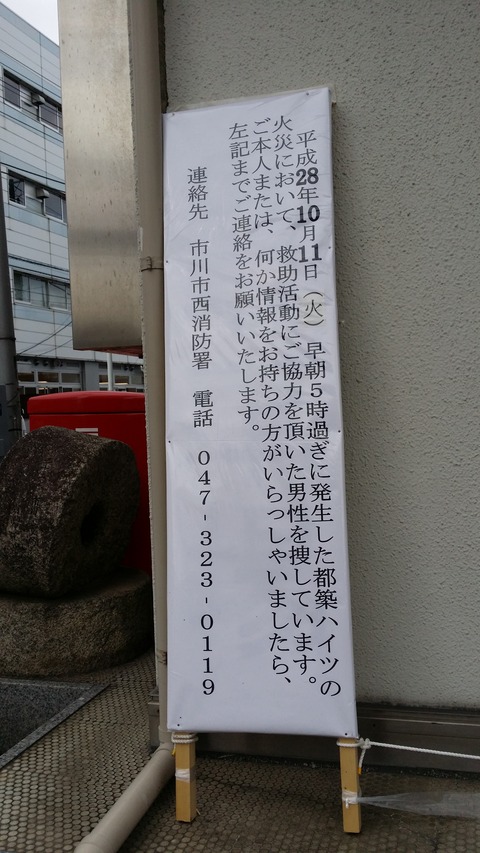 平成28年10月11日（火）早朝5時過ぎに発生した都築ハイツの
火災において、救助活動にご協力を頂いた男性を捜しています。
ご本人または、何か情報をお持ちの方がいらっしゃいましたら、
左記までご連絡をお願いいたします。
連絡先　市川市西消防署　電話　047-323-0119